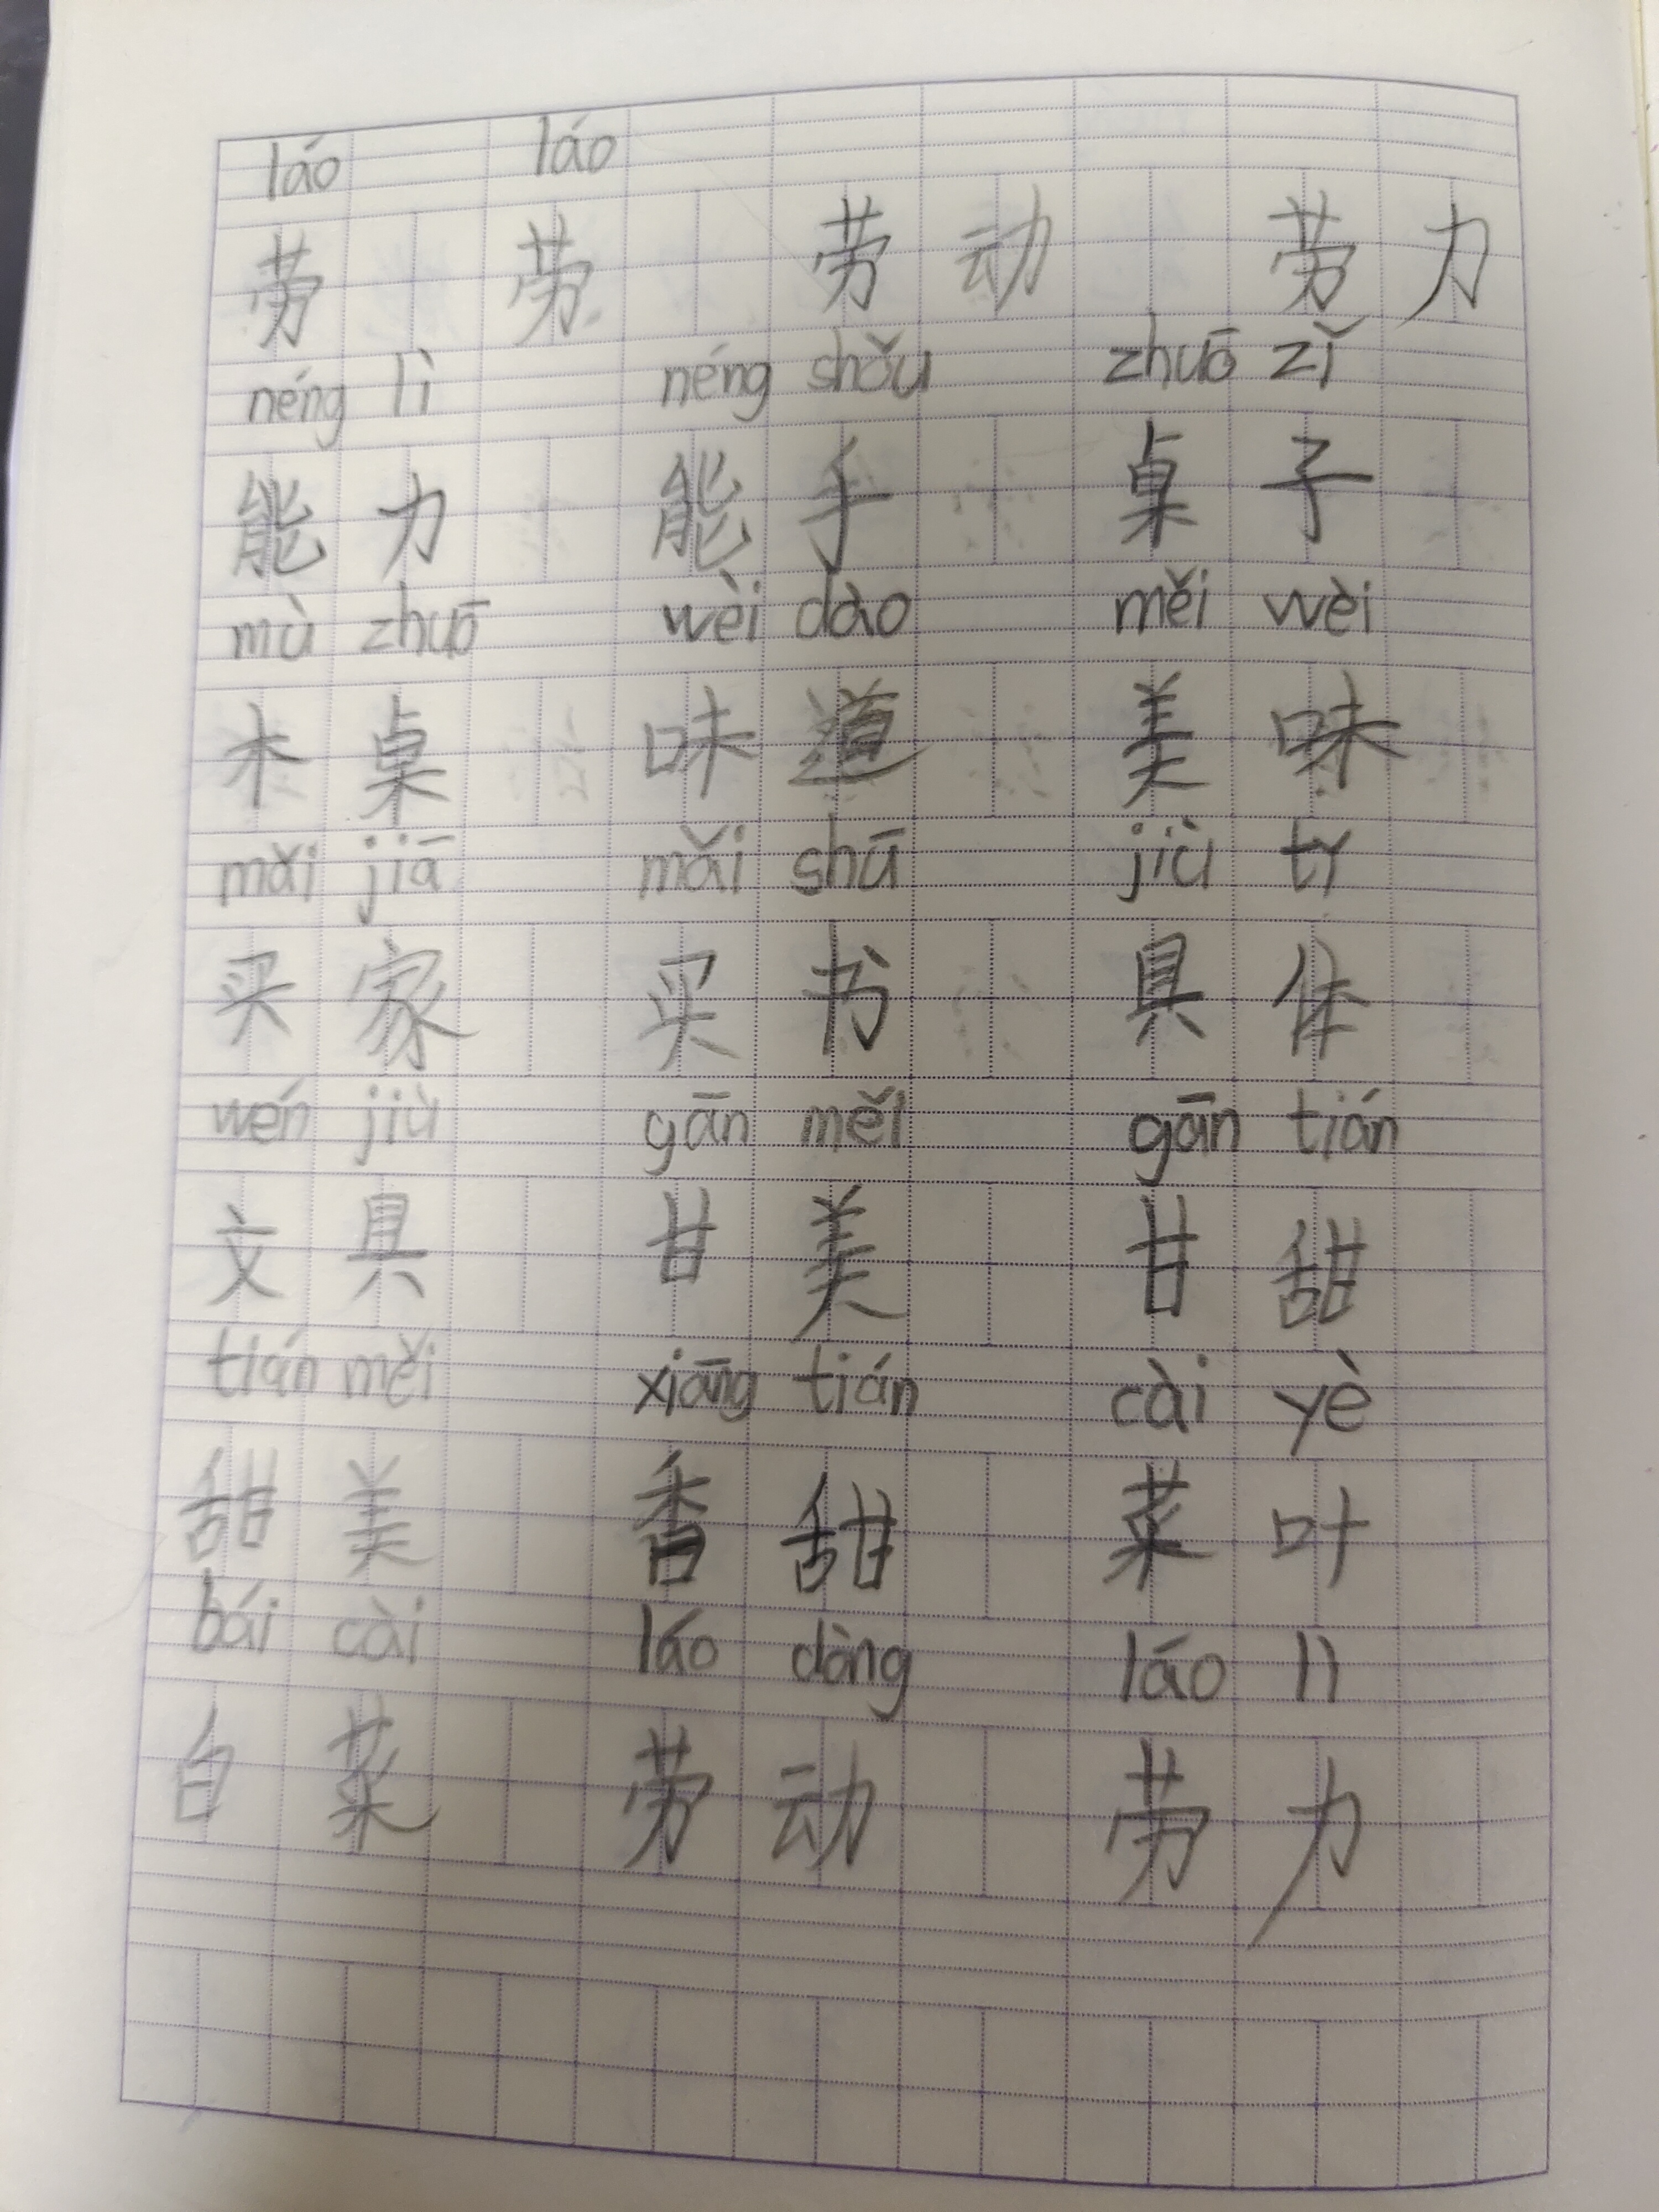 láo láo
劳 劳 劳动 劳力
néng lì néng shǒu zhuō zǐ
能力 能手 桌子
mù zhuō wèi dào měi wèi
木桌 味道 美味
mǎi jiā mǎi shū jiù tǐ
买家 买书 具体
wén jiù gān měi gān tián
文具 甘美 甘甜
tián měi xiāng tián cài yè
甜美 香甜 菜叶
bái cài láo dòng láo lì
白菜 劳动 劳力